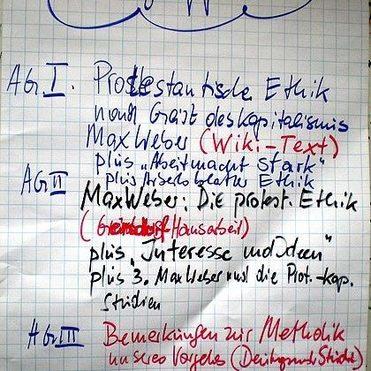 AG I. Protestantische Ethik
und Geist des Kapitalismus
Max Weber (Wiki-Text)
plus „Arbeit macht stark"
plus Ethik
AG II
Max Weber: Die protest. Ethik
( Hausarbeit)
plus „Interesse und Ideen"
plus 3. Max Weber und die Prot.-kap.
Studien
AG III Bemerkungen zur Methodik
unseres Vorgehens (